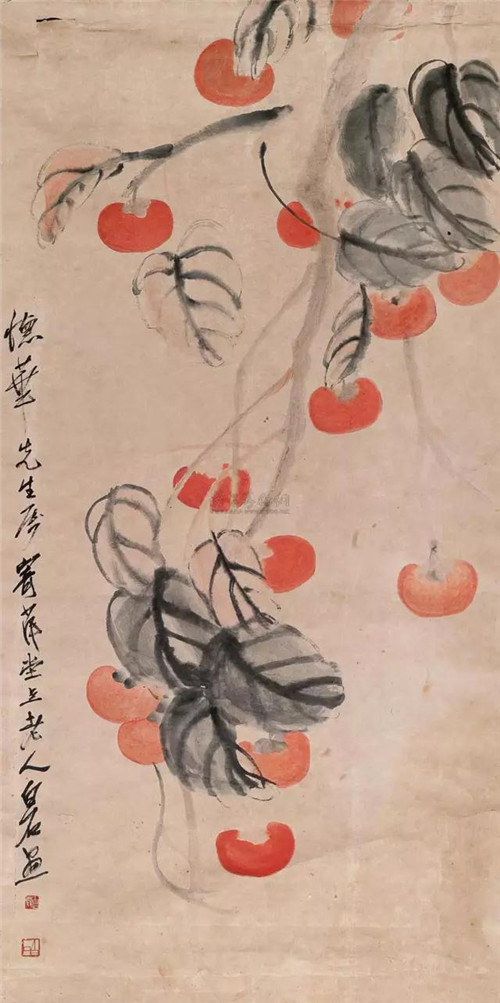 德華先生屬 寄萍堂上老人白石畫